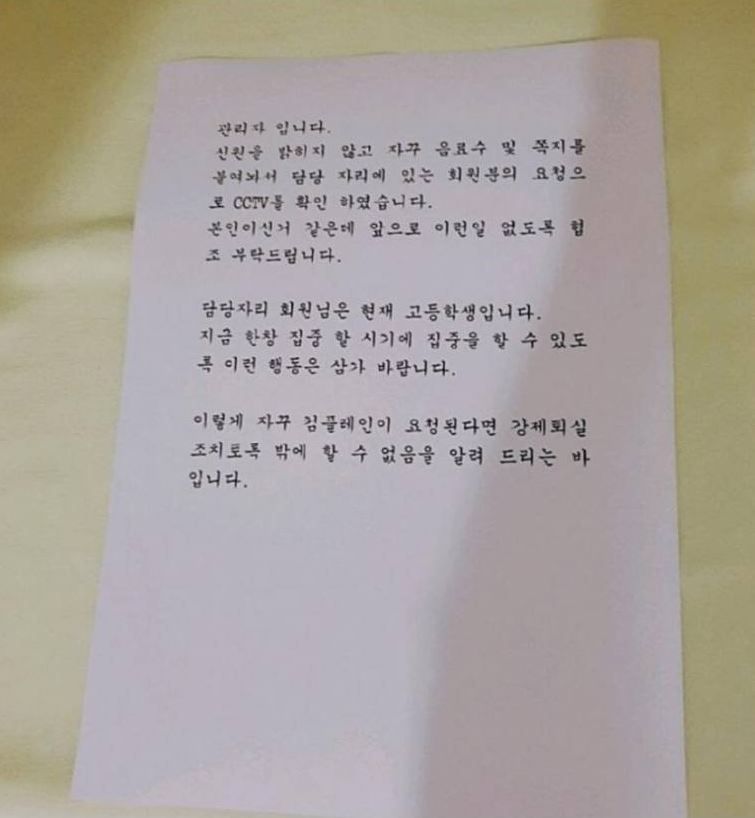 관리자 입니다.
신원을 밝히지 않고 자꾸 음료수 및 쪽지를
붙여놔서 담당 자리에 있는 회원분의 요청으
로 CCTV를 확인 하였습니다.
본인이신거 같은데 앞으로 이런일 없도록 협
조 부탁드립니다.
담당자리 회원님은 현재 고등학생입니다.
지금 한창 집중 할 시기에 집중을 할 수 있도
록 이런 행동은 삼가 바랍니다.
이렇게 자꾸 컴플레인이 요청된다면 강제퇴실
조치토록 밖에 할 수 없음을 알려 드리는 바
입니다.